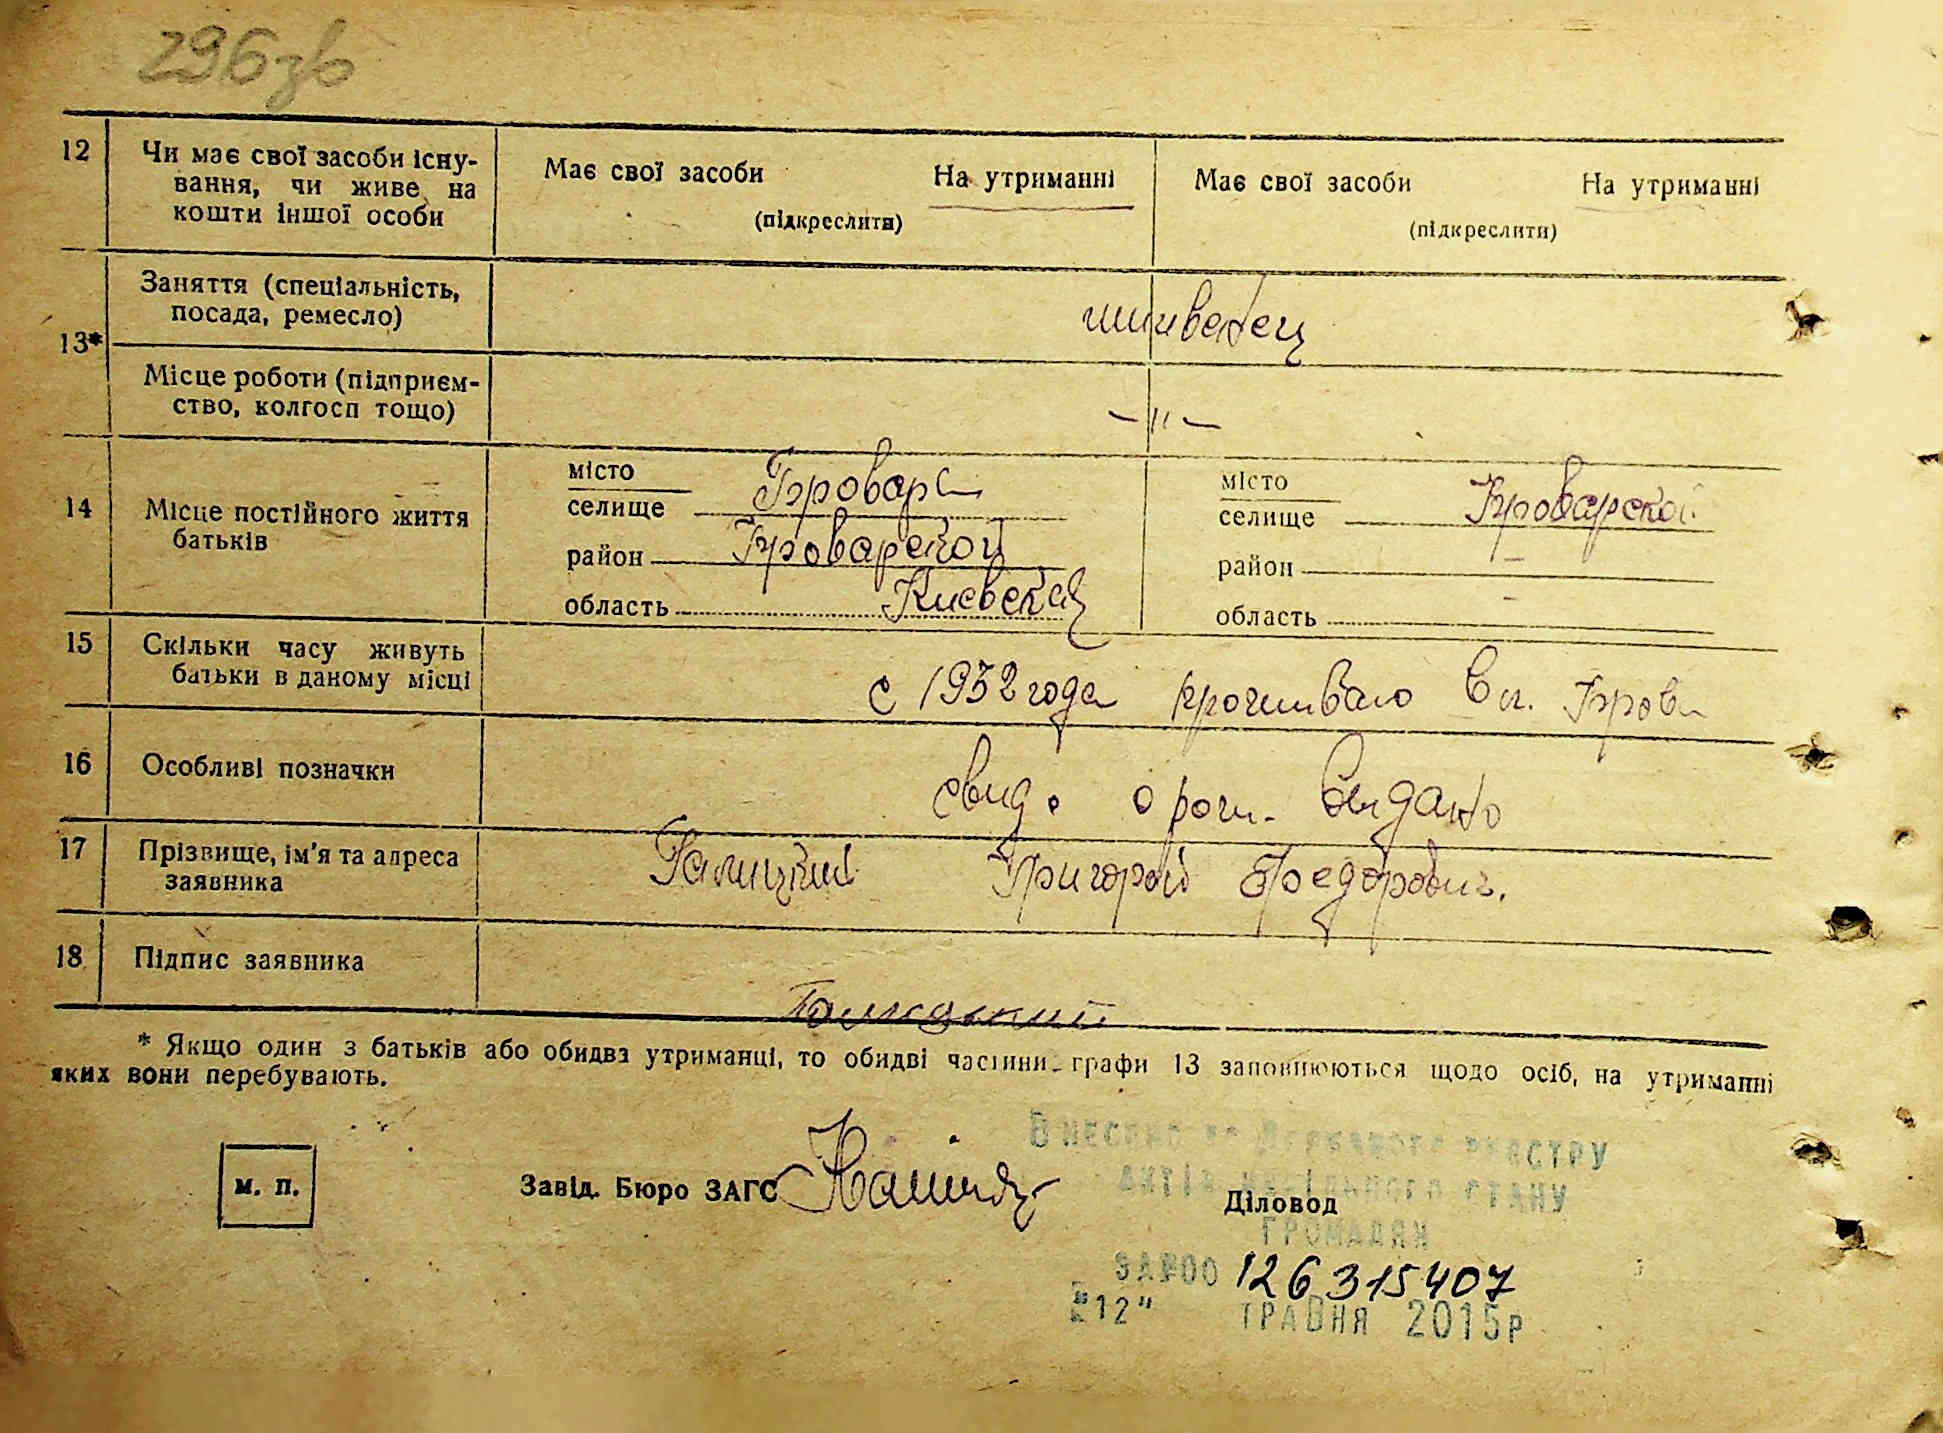 296зв
12 Чи має свої засоби існу-
вання, чи живе на
кошти іншої особи
Має свої засоби На утриманні
(підкреслити)
Має свої засоби На утриманні
(підкреслити)
13*
Заняття (спеціальність,
посада, ремесло)
Місце роботи (підприєм-
ство, колгосп тощо)
–"–
14 Місце постійного життя
батьків
місто
селище Бровары
район Броварской
область Киевская
місто
селище Броварской
район –
область –
15 Скільки часу живуть
батьки в даному місці
с 1932 года проживаю в п. Бров
16 Особливі позначки
свид. о рож. выдано
17 Прізвище, ім'я та адреса
заявника
Галицкий Григорий Федорович.
18 Підпис заявника
* Якщо один з батьків або обидва утриманці, то обидві частини графи 13 заповнюються щодо осіб, на утриманні
яких вони перебувають.
м. п.
Завід. Бюро ЗАГС
Діловод
Внесено до Державного реєстру
актів цивільного стану
громадян
за №00 126315407
"12" травня 2015р